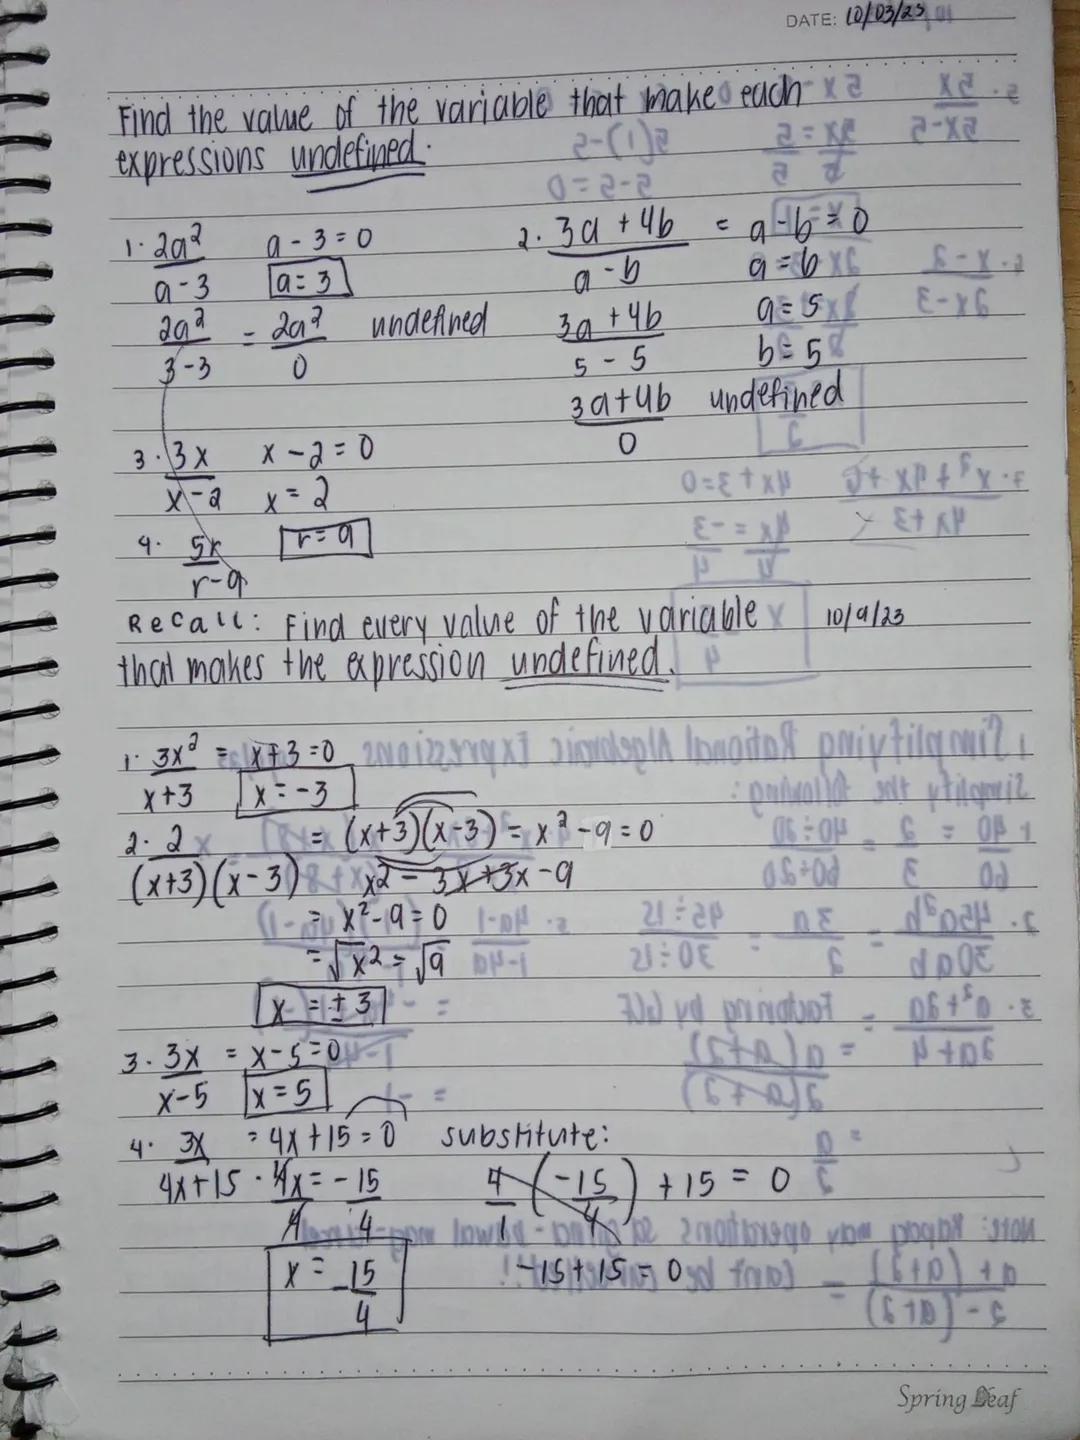 DATE: 10/03/23
Find the value of the variable that make each
expressions undefined.
1. 2a²/a-3    a - 3 = 0
a = 3
2a²/3-3 = 2a²/0    undefined
2. 3a + 4b/a - b = a - b = 0
a = b
3a + 4b/5 - 5    a = 5
b = 5
3a+4b/0    undefined
3. 3x/x-2    x - 2 = 0
x = 2
4. 5r/r-9    r = 9
Recall: Find every value of the variable    10/9/23
that makes the expression undefined.
1. 3x²/x+3 = x+3=0
x = -3
2. 2/(x+3)(x-3) = (x+3)(x-3) = x² - 9 = 0
x² - 3x + 3x - 9
= x² - 9 = 0
= √x² = √9
x = ± 3
3. 3x/x-5 = x-5=0
x = 5
4. 3x/4x+15 = 4x+15=0    substitute:
4x/4 = -15/4    4/1 (-15/4) + 15 = 0
x = -15/4    -15+15 = 0
Spring Leaf